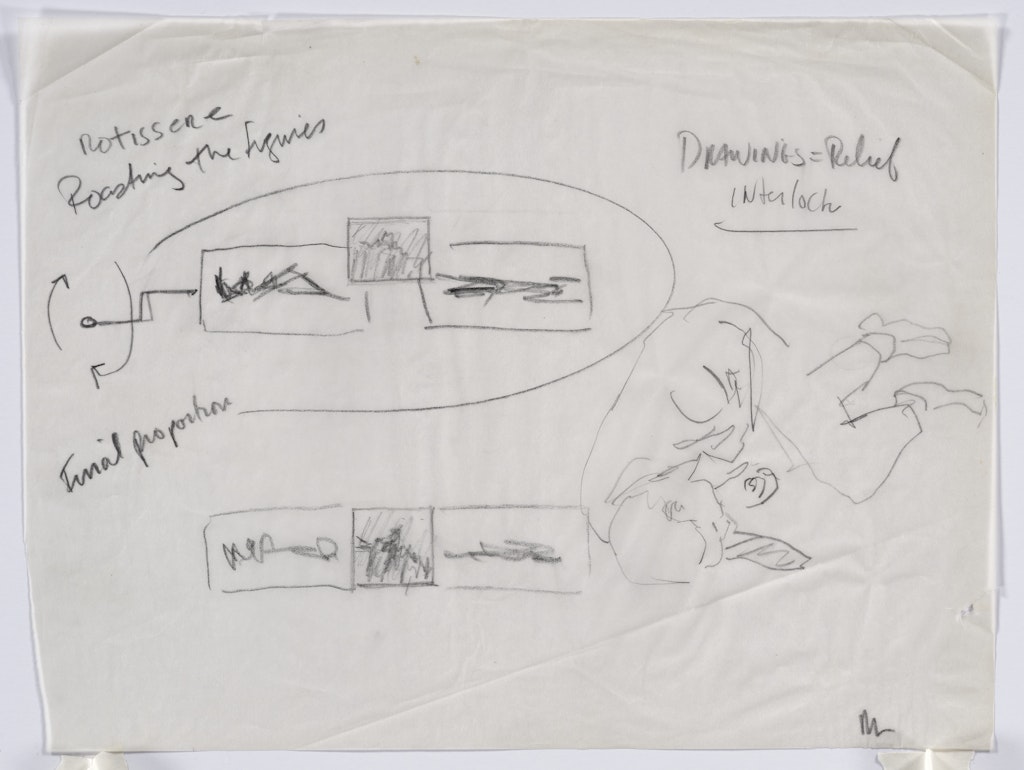 ROTISSERE
Roasting the figures
DRAWINGS = Relief
INterlock
Final proportion